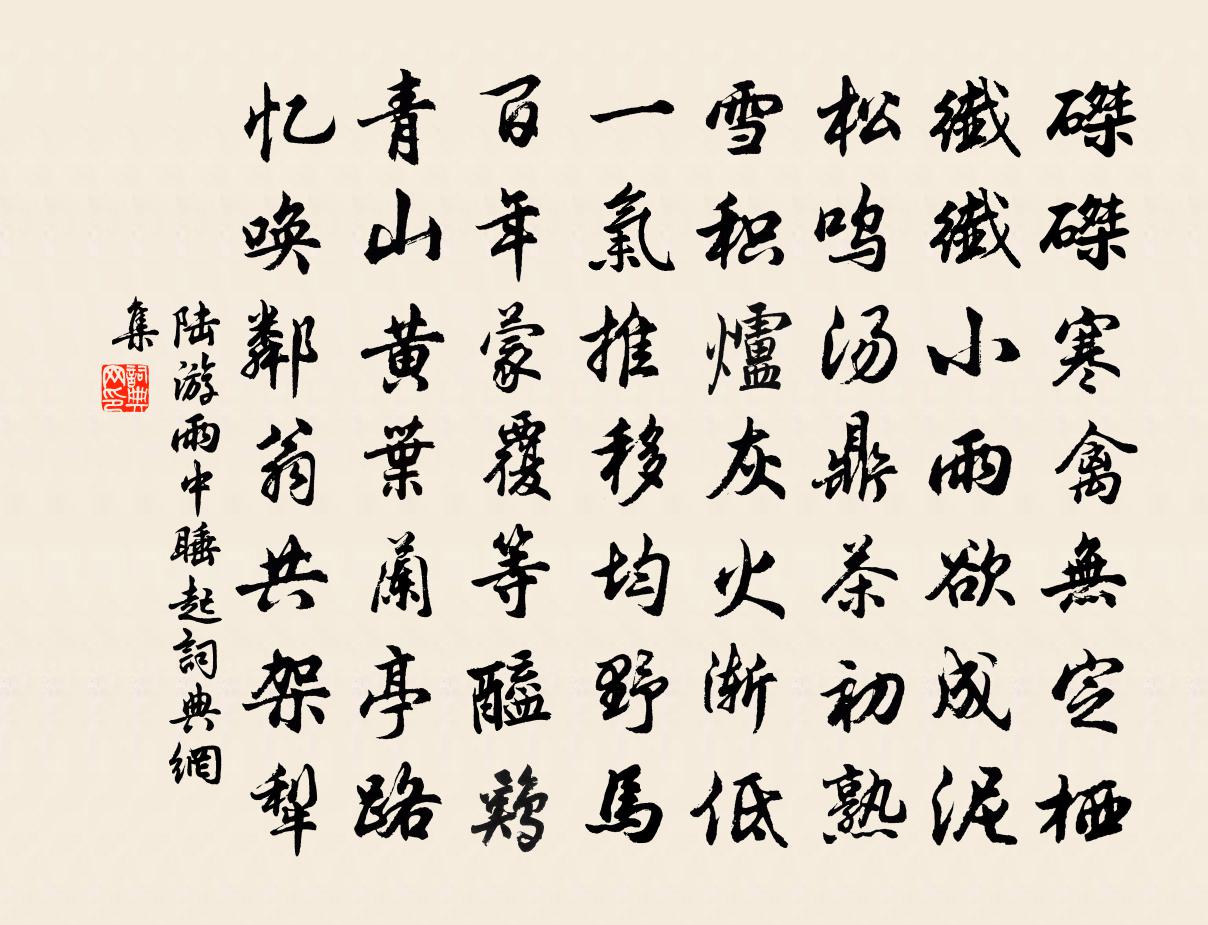 磔磔寒禽無定栖
纖纖小雨欲成泥
松鸣汤鼎茶初熟
雪积爐灰火漸低
一氣推移均野馬
百年蒙覆等醯鶏
青山黄葉蘭亭路
忆唤鄰翁共架犁
陆游雨中睡起詞典網
集
詞典
网印